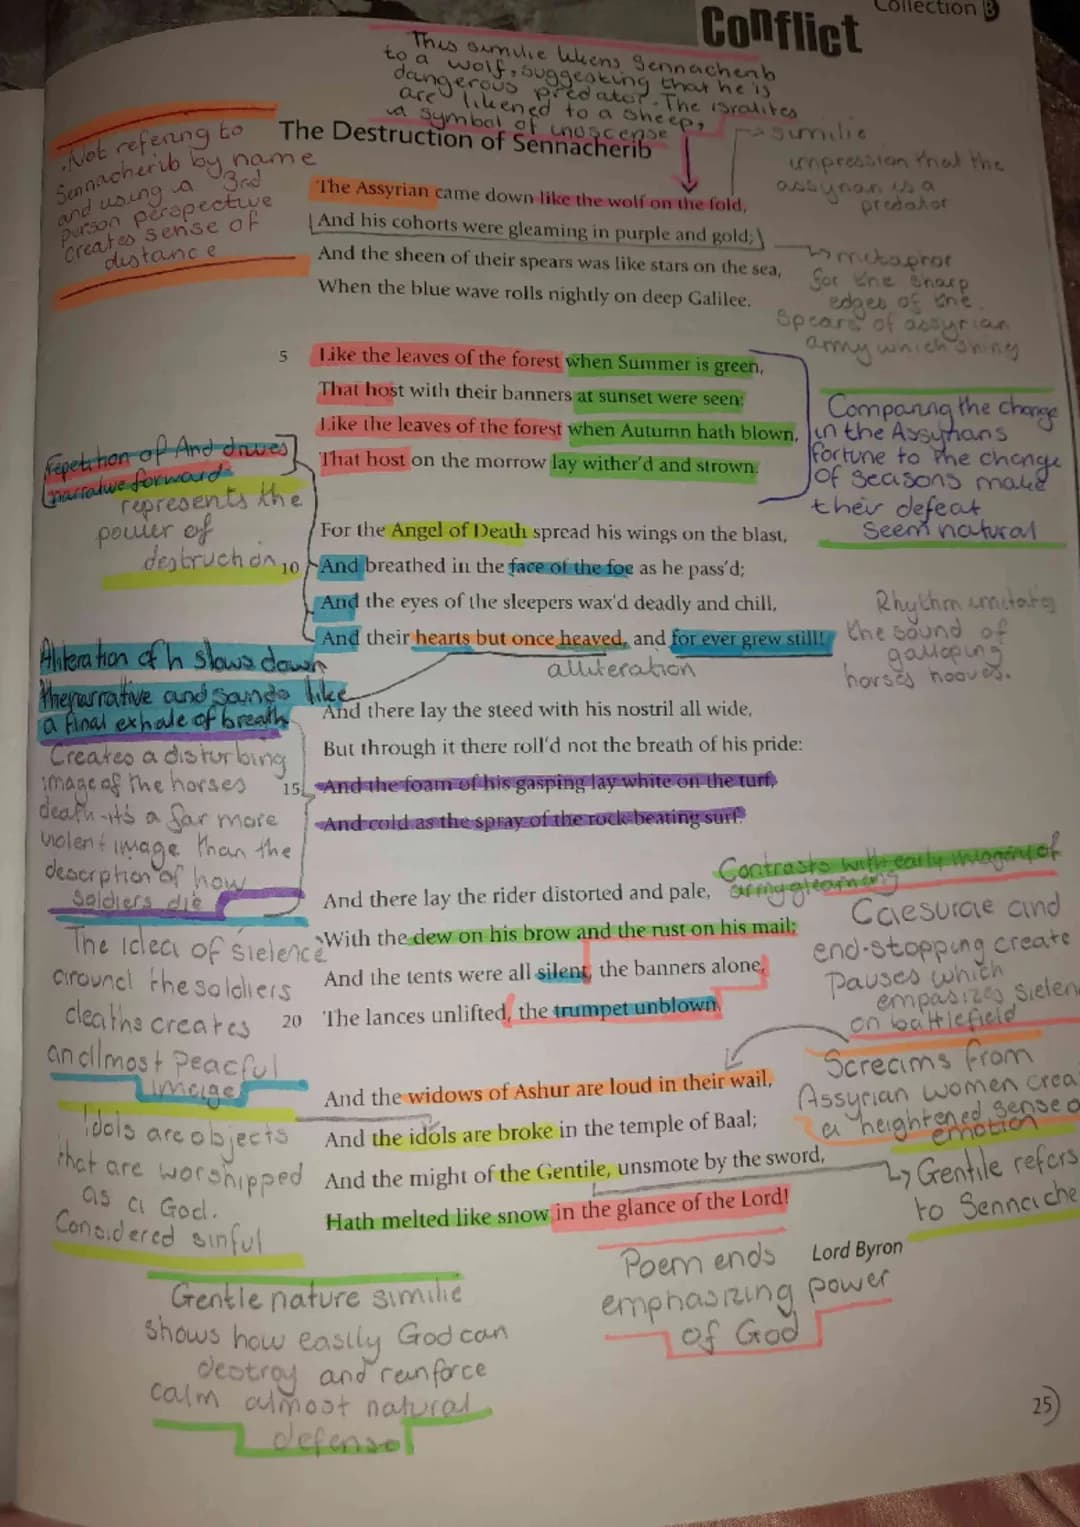 Collection B
Conflict
This similie likens Sennacherib
to a wolf, suggesting that he is
dangerous predator. The isralites
are likened to a sheep,
a symbol of inoscense
The Destruction of Sennacherib
. Not refering to
Sennacherib by name
and using a 3rd
person perspective
creates sense of
distance
similie
impression that the
assyrian is a
predator
The Assyrian came down like the wolf on the fold,
And his cohorts were gleaming in purple and gold;
And the sheen of their spears was like stars on the sea,
When the blue wave rolls nightly on deep Galilee.
metaphor
for the sharp
edges of the
spears of assyrian
army which shiny
5 Like the leaves of the forest when Summer is green,
That host with their banners at sunset were seen:
Like the leaves of the forest when Autumn hath blown,
That host on the morrow lay wither'd and strown.
Comparing the change
in the Assyrians
fortune to the change
of seasons make
their defeat
seem natural
repetition of And drives
narrative forward
represents the
power of
destruction
For the Angel of Death spread his wings on the blast,
10 And breathed in the face of the foe as he pass'd;
And the eyes of the sleepers wax'd deadly and chill,
And their hearts but once heaved, and for ever grew still!
alliteration
Rhythm imitates
the sound of
galloping
horses hooves.
Aliteration of h slows down
the narrative and sounds like
a final exhale of breath
And there lay the steed with his nostril all wide,
But through it there roll'd not the breath of his pride:
15 And the foam of his gasping lay white on the turf,
And cold as the spray of the rock-beating surf.
Creates a disturbing
image of the horses
death - it's a far more
violent image than the
description of how
soldiers die
Contrasts with early imagery of
army gleaming
And there lay the rider distorted and pale,
With the dew on his brow and the rust on his mail;
And the tents were all silent, the banners alone,
20 The lances unlifted, the trumpet unblown.
Caesurae and
end-stopping create
pauses which
empasizes sielen
on battlefield
The idea of sielence
around the soldiers
deaths creates
an allmost peacful
image
And the widows of Ashur are loud in their wail,
And the idols are broke in the temple of Baal;
And the might of the Gentile, unsmote by the sword,
Hath melted like snow in the glance of the Lord!
Screams from
Assyrian women crea
a heightened sense o
emotion
Gentile refers
to Sennache
Idols are objects
that are worshipped
as a God.
Considered sinful
Lord Byron
Poem ends
emphasizing power
of God
Gentle nature similie
shows how easily God can
destroy and reinforce
calm almost natural
defense
25